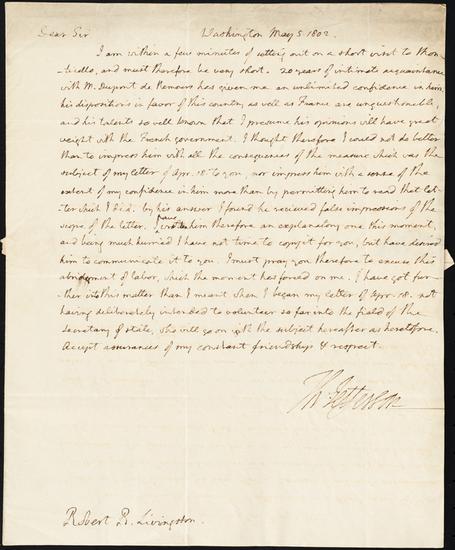 Dear Sir Washington May 5. 1802.
I am within a few minutes of setting out on a short visit to Mon-
ticello, and must therefore be very short. 20 years of intimate acquaintance
with M. Dupont de Nemours has given me an unlimited confidence in him,
his dispositions in favor of this country as well as France are unquestionable,
and his talents so well known that I presume his opinions will have great
weight with the French government. I thought therefore I could not do better
than to impress him with all the consequences of the measure which was the
subject of my letter of Apr. 18. to you, nor impress him with a sense of the
extent of my confidence in him more than by permitting him to read that let-
ter which I did. by his answer I found he recieved false impressions of the
scope of the letter. I have written him therefore an explanatory one this moment,
and being much hurried I have not time to copy it for you, but have desired
him to communicate it to you. I must pray you therefore to excuse this
abridgement of labor, which the moment has forced on me. I have got fur-
ther into this matter than I meant when I began my letter of Apr. 18. not
having deliberately intended to volunteer so far into the field of the
Secretary of state, who will go on with the subject hereafter as heretofore.
Accept assurances of my constant friendship & respect.
Th: Jefferson
Robert R. Livingston.